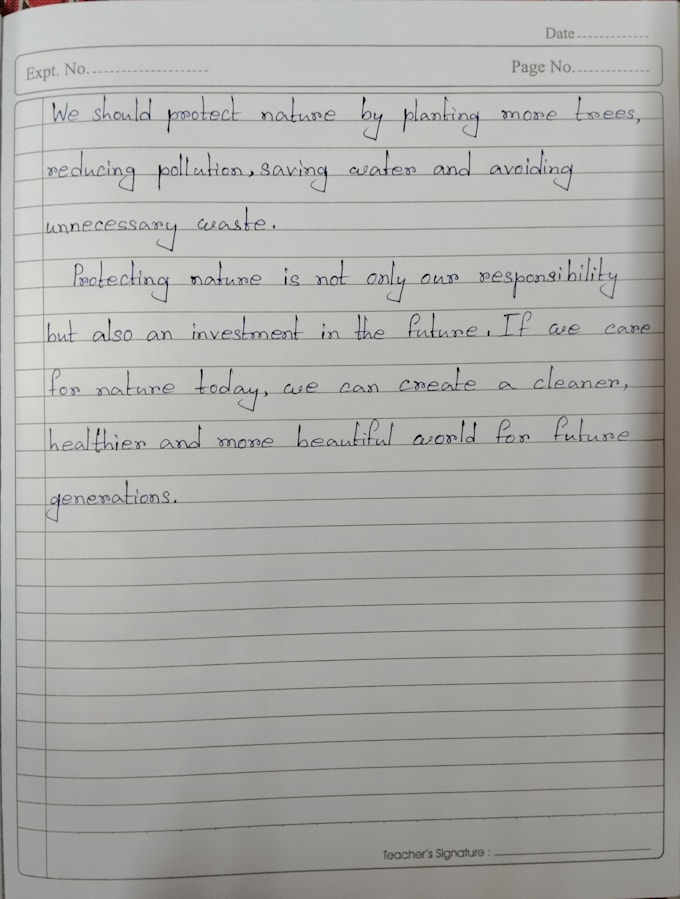 Date.............
Expt. No.......................
Page No..............
We should protect nature by planting more trees,
reducing pollution, saving water and avoiding
unnecessary waste.
Protecting nature is not only our responsibility
but also an investment in the future. If we care
for nature today, we can create a cleaner,
healthier and more beautiful world for future
generations.
Teacher's Signature :